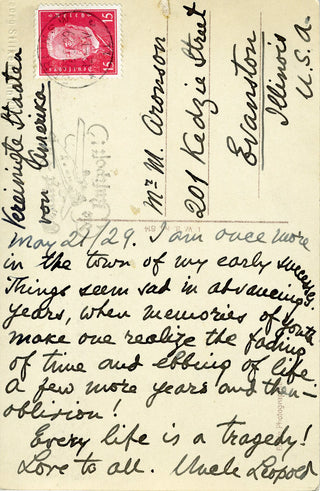 Mr M. Aronson
201 Kedzie Street
Evanston
Illinois
U.S.A.
Vereinigte Staaten
von Amerika
15 15
Deutsches
May 21/29. I am once more
in the town of my early successes.
Things seem sad in advancing
years, when memories of youth
make one realize the fading
of time and ebbing of life.
A few more years and then –
oblivion!
Every life is a tragedy!
Love to all. Uncle Leopold